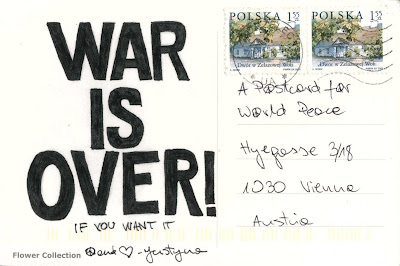 WAR
IS
OVER!
IF YOU WANT IT
Justyna
Flower Collection
POLSKA 1 55 ZŁ
Dwór w Żelazowej Woli
POLSKA 1 55 ZŁ
Dwór w Żelazowej Woli
A Postcard for
World Peace
Hyegasse 3/18
1030 Vienna
Austria